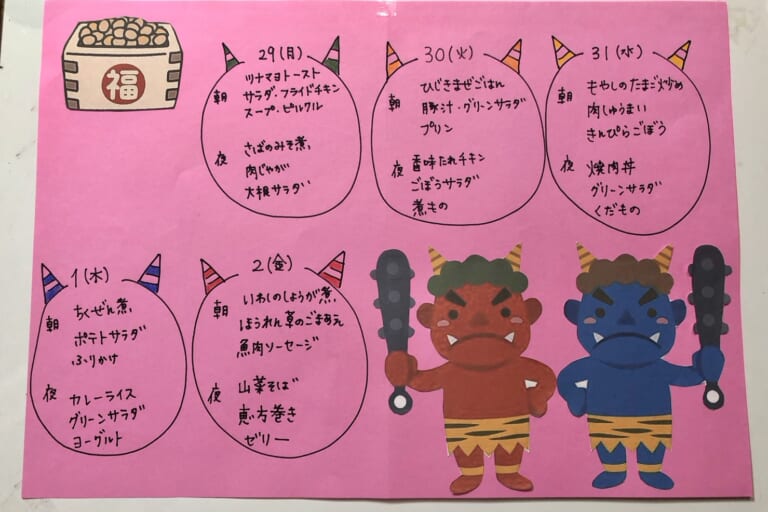 福
29(月)
朝
ツナマヨトースト
サラダ・フライドチキン
スープ・ピルクル
夜
さばのみそ煮
肉じゃが
大根サラダ
30(火)
朝
ひじきまぜごはん
豚汁・グリーンサラダ
プリン
夜
香味だれチキン
ごぼうサラダ
煮もの
31(水)
朝
もやしのたまご炒め
肉しゅうまい
きんぴらごぼう
夜
焼肉丼
グリーンサラダ
くだもの
1(木)
朝
ちくぜん煮
ポテトサラダ
ふりかけ
夜
カレーライス
グリーンサラダ
ヨーグルト
2(金)
朝
いわしのしょうが煮
ほうれん草のごまあえ
魚肉ソーセージ
夜
山菜そば
恵方巻き
ゼリー